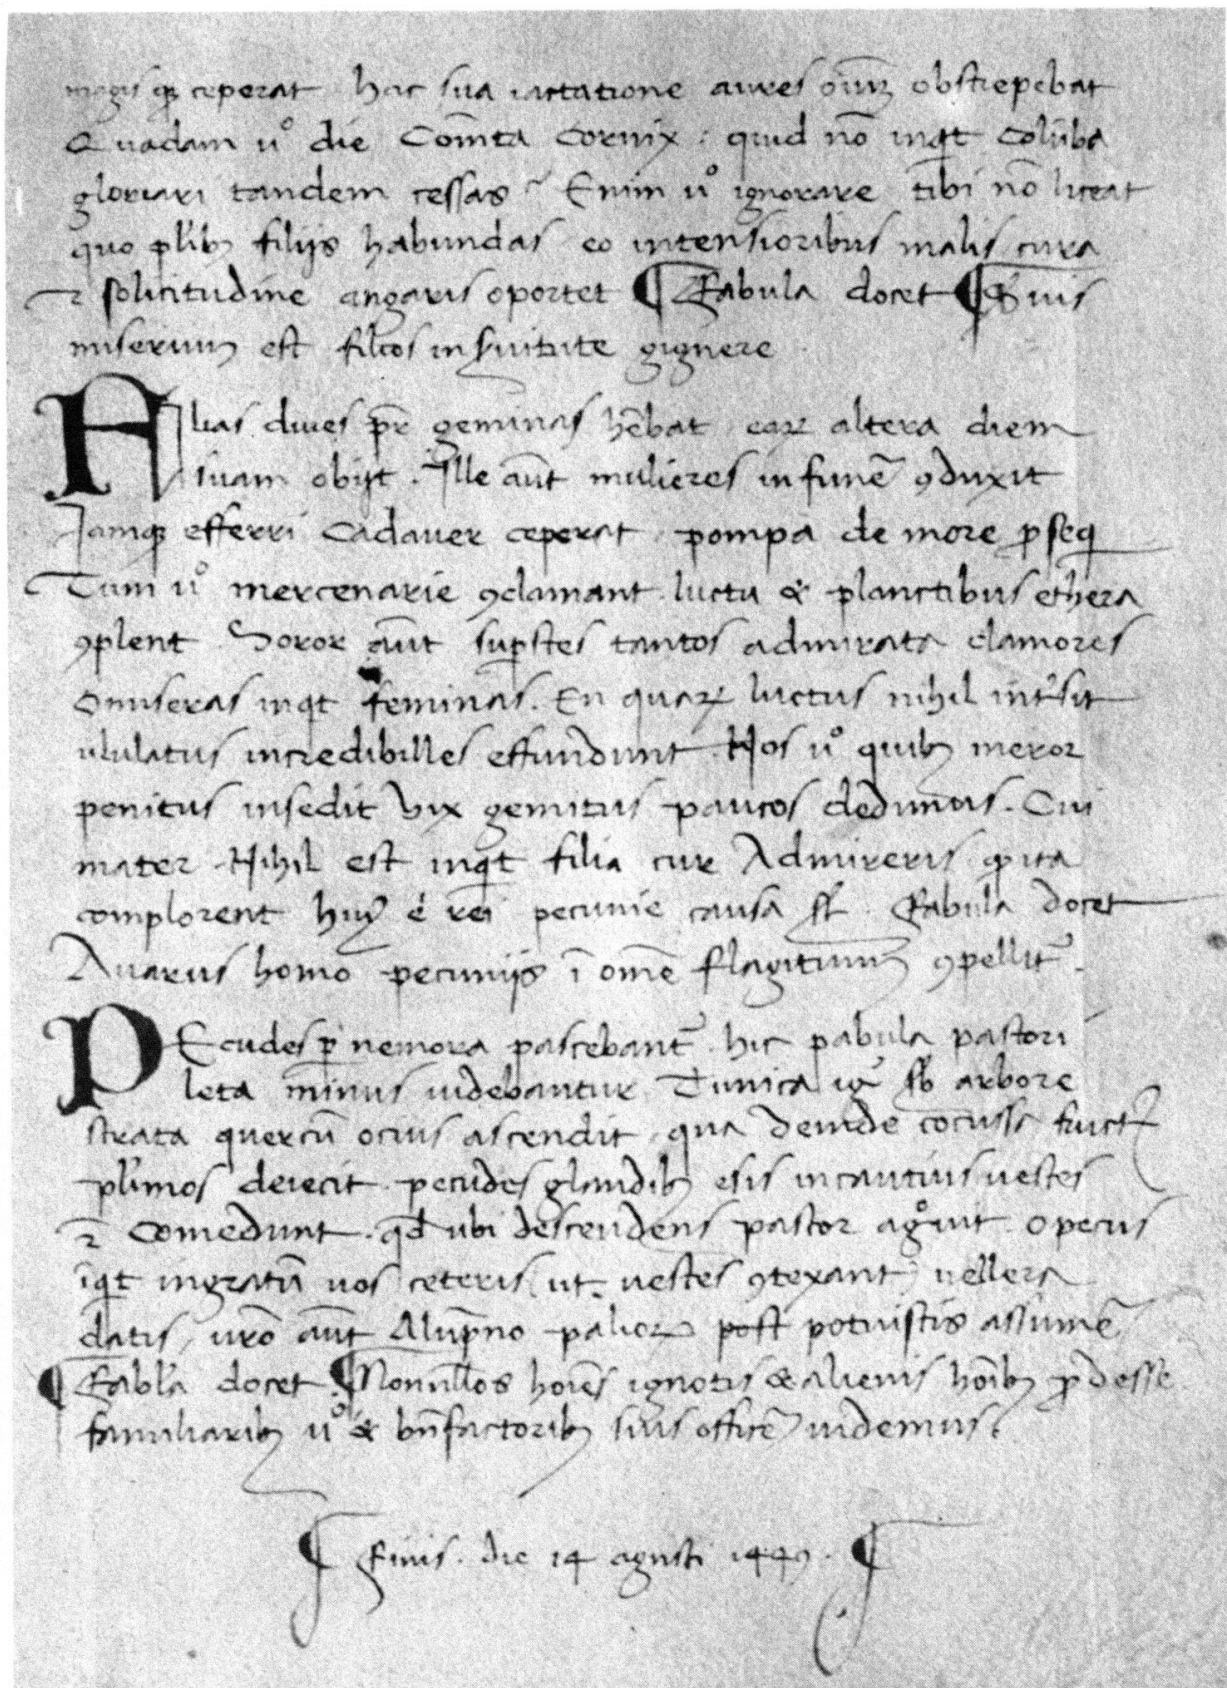 magis qȝ ceperat hac sua iactatione aures oium obstrepebat
Quadam u° die Comōta Cornix : quid nō inqt Colūba
gloriari tandem cessas Enim u° ignorare tibi nō liceat
quo plibȝ filijs habundas eo intensioribus malis cura
⁊ solicitudine angaris oportet ¶ Fabula docet ¶ Suis
miserium est filios in suitute gignere
Alias diues pr̄ geminas hēbat eaꝝ altera diem
suam obijt . Ille aūt mulieres in funē ꝯduxit
Jamqȝ efferri Cadauer ceperat pompa de more ꝓseq
Tum u° mercenarie ꝯclamant luctu & planctibus ethera
ꝯplent Soror aūt suꝑstes tantos admirata clamores
O miseras inqt feminas . En quaꝝ luctus nihil intsit
ululatus incredibilles effundunt Nos u° quibȝ meror
penitus insedit uix gemitus paucos dedimus . Cui
mater Nihil est inqt filia cur Admireris ita
complorent huiꝰ rei pecunie causa Fabula docet
Auarus homo pecunijs ī omē flagitium ꝯpellit̄ .
PEcudes ꝑ nemora pascebant̄ . hic pabula pastori
leta minus uidebantur Tunica ig̃ sb arbore
strata quercū ocius ascendit qua deinde cōcussa fruct
plimos deiecit pecudes glandibȝ esis incautius uestes
⁊ Comedunt . qd ubi descendens pastor ag°uit O pecus
īqt ingratū uos ceteris ut uestes ꝯtexant uellera
datis ur̄o aūt Alupno palior post potuistis assumē
¶ Fabla docet . ¶ Nonullos hoīes ignotis & alienis hoībȝ ꝓdesse
familiaribȝ u° & bn̄factoribȝ suis officē uidemus .
¶ Finis . die 14 agusti 1449 . ¶